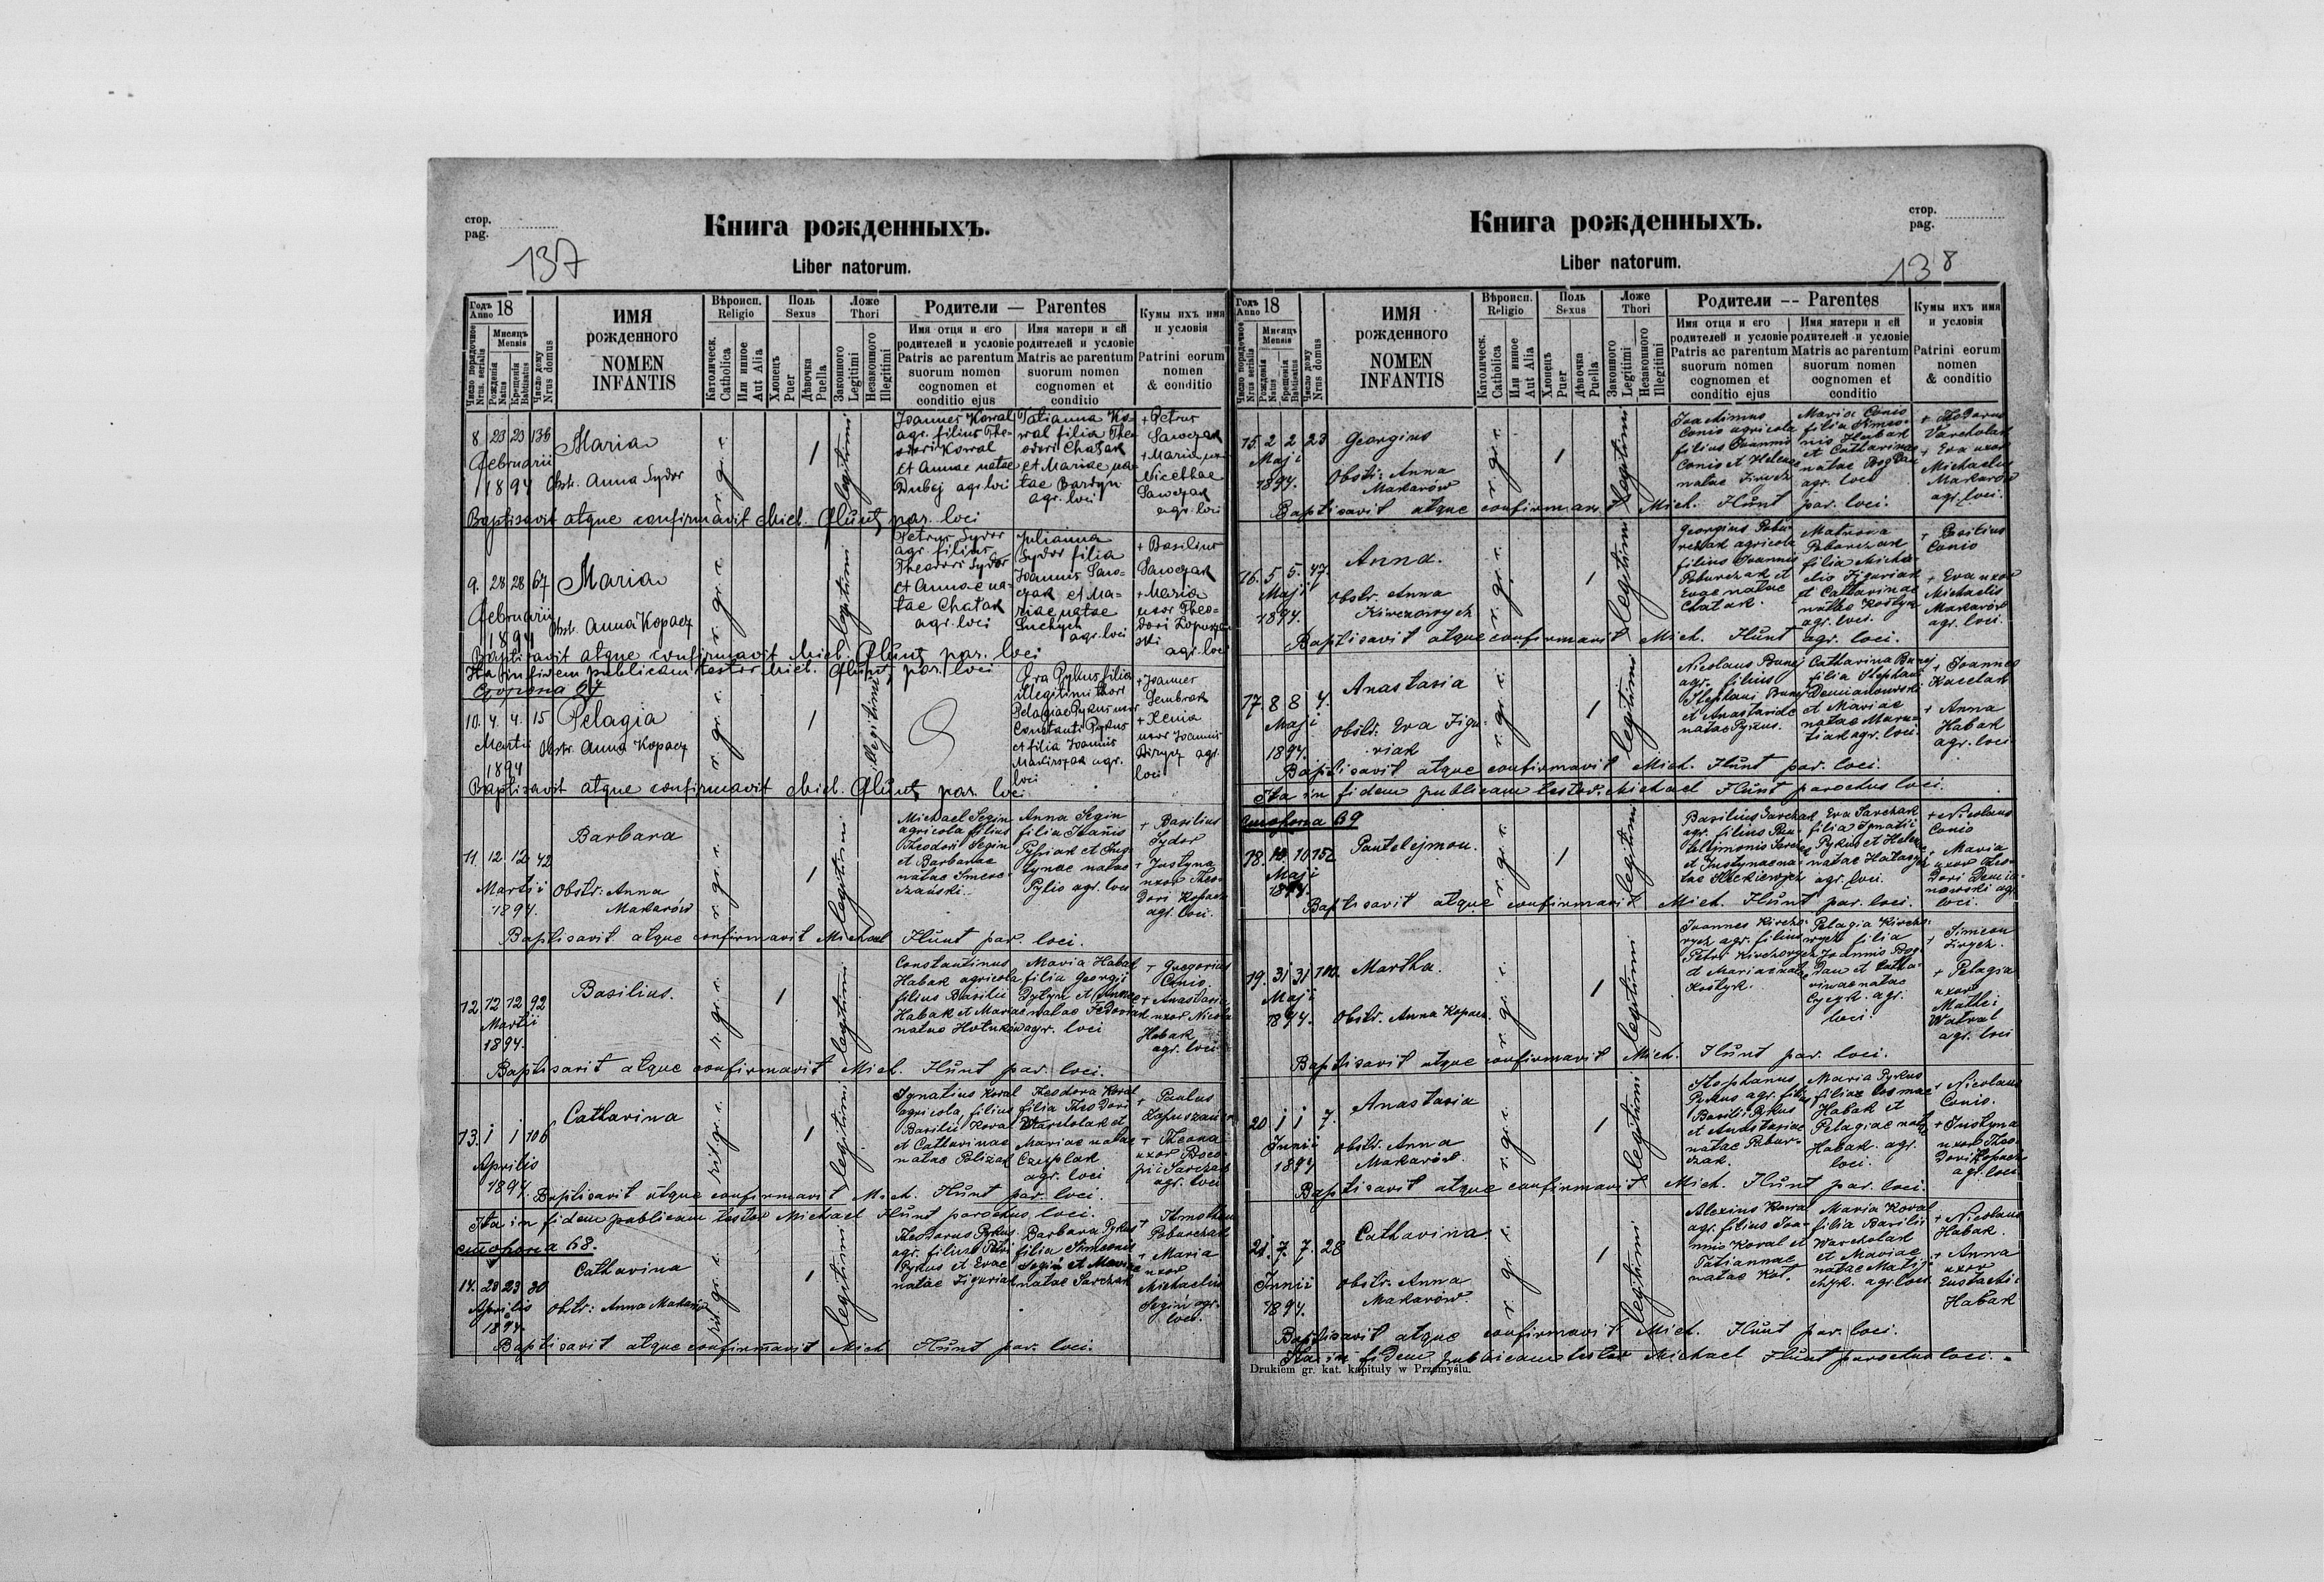 стор.
pag.
137
Книга рожденныхъ.
Liber natorum.
Годъ 18
Anno
Число порядочное
Nrus. serialis
Мисяць
Mensis
Рожденія
Natus
Крещенія
Babtisatus
Число дому
Nrus domus
ИМЯ
рожденного
NOMEN
INFANTIS
Вѣроисп.
Religio
Католическ.
Catholica
Или инное
Aut Alia
Поль
Sexus
Хлопець
Puer
Дѣвочка
Puella
Ложе
Thori
Законного
Legitimi
Незаконного
Illegitimi
Родители — Parentes
Имя отця и его
родителей и условіе
Patris ac parentum
suorum nomen
cognomen et
conditio ejus
Имя матери и ей
родителей и условіе
Matris ac parentum
suorum nomen
cognomen et
conditio
Кумы ихъ имя
и условія
Patrini eorum
nomen
& conditio
8 23 23 136
Februarii
1894
Maria
Obstr. Anna Sydor
r. gr. c.
legitimi
Joannes Kowal
agr. filius The-
odori Kowal
et Annae natae
Dubej agr. loci
Tatianna Ko-
wal filia The-
odori Chatak
et Mariae na-
tae Bardyn
agr. loci
+ Petrus
Sawczak
+ Maria
Nicethae
Sawczak
agr. loci
Baptisavit atque confirmavit Mich. Hlunt par. loci
9. 28 28 67
Februarii
1894
Maria
Obstr. Anna Kopacz
r. gr. c.
legitimi
Petrus Sydor
agr. filius
Theodori Sydor
et Annae na-
tae Chatak
agr. loci
Julianna
Sydor filia
Joannis Saw-
czak et Ma-
riae natae
Suchych
agr. loci
+ Basilius
Sawczak
+ Maria
uxor Theo-
dori
agr. loci
Baptisavit atque confirmavit Mich. Hlunt par. loci
Ita in fidem publicam testor Mich. Hlunt par. loci
Сторона 67
10. 4. 4. 15
Martii
1894
Pelagia
Obstr. Anna Kopacz
r. gr. c.
illegitimi
Eva Pykus filia
illegitimi thori
Pelagiae Pykus uxor
Constanti Pykus
et filia Joannis
agr.
loci
+ Joannes
Sembrak
+ Xenia
uxor Joannis
agr.
loci
Baptisavit atque confirmavit Mich. Hlunt par. loci
11 12 12 42
Martii
1894.
Barbara
Obstr: Anna
Makarów
r. gr. c.
legitimi
Michael Segin
agricola filius
Theodori Segin
et Barbarae
natae
Anna Segin
filia Joannis
et Jus-
tynae natae
Pylio agr. loci
+ Basilius
Sydor
+ Justyna
uxor Theo-
dori Kopacz
agr. loci.
Baptisavit atque confirmavit Michael Hlunt par. loci.
12 12 12 92
Martii
1894.
Basilius.
r. gr. c.
legitimi
Constantinus
Habak agricola
filius Basilii
Habak et Mariae
natae
Maria Habak
filia Georgii
Dytyn et Annae
natae
agr. loci
+ Gregorius
Conio
+ Anastasia
uxor Nicolai
Habak
agr. loci
Baptisavit atque confirmavit Mich. Hlunt par. loci.
13. 1 1 106
Aprilis
1894.
Catharina
rit. gr. c.
legitimi
Ignatius Koval
agricola, filius
Basilii Koval
et Catharinae
natae
Theodora Koval
filia Theodori
Warcholak et
Mariae natae
Czuplak
agr. loci
+ Paulus
+ Theona
uxor
Sawczak
agr. loci
Baptisavit atque confirmavit Mich. Hlunt par. loci.
Ita in fidem publicam testor Michael Hlunt parochus loci.
сторона 68.
14. 23 23 30
Aprilis
1894.
Catharina
obstr: Anna Makarów
rit. gr. c.
legitimi
Theodorus Pykus
agr. filius Petri
Pykus et Evae
natae Ziguriak
Barbara Pykus
filia Simeonis
Segin et Mariae
natae Sawczak
+ Timotheus
+ Maria
uxor
Michaelis
Segin agr.
loci.
Baptisavit atque confirmavit Mich Hlunt par. loci.
стор.
pag.
138
Книга рожденныхъ.
Liber natorum.
Годъ 18
Anno
Число порядочное
Nrus. serialis
Мисяць
Mensis
Рожденія
Natus
Крещенія
Babtisatus
Число дому
Nrus domus
ИМЯ
рожденного
NOMEN
INFANTIS
Вѣроисп.
Religio
Католическ.
Catholica
Или инное
Aut Alia
Поль
Sexus
Хлопець
Puer
Дѣвочка
Puella
Ложе
Thori
Законного
Legitimi
Незаконного
Illegitimi
Родители -- Parentes
Имя отця и его
родителей и условіе
Patris ac parentum
suorum nomen
cognomen et
conditio ejus
Имя матери и ей
родителей и условіе
Matris ac parentum
suorum nomen
cognomen et
conditio
Кумы ихъ имя
и условія
Patrini eorum
nomen
& conditio
15. 2 2 23
Maji
1894.
Georgius
Obstr: Anna
Makarów
r. gr. c.
legitimi
Joachimus
Conio agricola
filius Joannis
Conio et Helenae
natae
Maria Conio
filia Simeo-
nis Habak
et Catharinae
natae Bogdan
agr. loci
Warcholak
+ Eva uxor
Michaelis
Makarów
agr. loci.
Baptisavit atque confirmavit Mich. Hlunt par. loci.
16. 5 5. 47
Maji
1894.
Anna.
obstr. Anna
Kirczowych
r. gr. c.
legitimi
Georgius Pobu-
rczak agricola
filius Joannis
Poburczak et
Evae natae
Chatak.
Matrona
Poburczak
filia Micha-
elis Ziguriak
et Catharinae
natae Kostyk
agr. loci.
+ Basilius
Conio
+ Eva uxor
Michaelis
Makarów
agr. loci.
Baptisavit atque confirmavit Mich. Hlunt agr. loci.
17. 8 8 4.
Maji
1894.
Anastasia
obstr. Eva Zigu-
riak
r. gr. c.
legitimi
Nicolaus Bunej
agr. filius
Stephani Bunej
et Anastasiae
natae Pykus.
Catharina Bunej
filia Stephani
Demianowski
et Mariae
natae Mara-
tiak agr. loci.
+ Joannes
+ Anna
Habak
agr. loci
Baptisavit atque confirmavit Mich. Hlunt par. loci.
Ita in fidem publicam testor. Michael Hlunt parochus loci.
сторона 69
18. 10 10 152
Maji
1894.
Pantelejmon.
r. gr. c.
legitimi
Basilius Sawczak
agr. filius Pan-
telejmonis
et Justynae na-
tae
Eva Sawczak
filia Ignatii
Pykus et Helenae
natae
agr. loci.
+ Nicolaus
Conio
+ Maria
uxor Theo-
dori Demia-
nowski agr.
loci.
Baptisavit atque confirmavit Mich. Hlunt par. loci.
19. 31 31 100.
Maji
1894.
Martha.
Obstr. Anna Kopacz.
r. gr. c.
legitimi
Joannes Kirczo-
wych agr. filius
Petri Kirczowych
et Mariae natae
Kostyk.
Pelagia Kirczo-
wych filia
Joannis Bog-
dan et Catha-
rinae natae
agr.
loci.
+ Simeon
+ Pelagia
uxor
Mathei
Watral
agr. loci
Baptisavit atque confirmavit Mich. Hlunt par. loci.
20 1 1 7.
Junii
1894
Anastasia
obstr. Anna
Makarów.
r. gr. c.
legitimi
Stephanus
Pykus agr. filius
Basilii Pykus
et Anastasiae
natae Pobur-
czak.
Maria Pykus
filia Cosmae
Habak et
Pelagiae natae
Habak. agr.
loci.
+ Nicolaus
Conio.
+ Justyna
uxor Theo-
dori Kopacz
agr. loci
Baptisavit atque confirmavit Mich. Hlunt par. loci.
21. 7. 7. 28
Junii
1894.
Catharina
obstr. Anna
Makarów.
r. gr. c.
legitimi
Alexius Koval
agr. filius Joa-
nnis Koval et
Tatiannae
natae Kot.
Maria Koval
filia Basilii
Warcholak
et Mariae
natae
agr. loci
+ Nicolaus
Habak.
+ Anna
uxor
Eustachi
Habak
Baptisavit atque confirmavit Mich. Hlunt par. loci.
Ita in fidem publicam testor Michael Hlunt parochus loci.
Drukiem gr. kat. kapituły w Przemyślu.